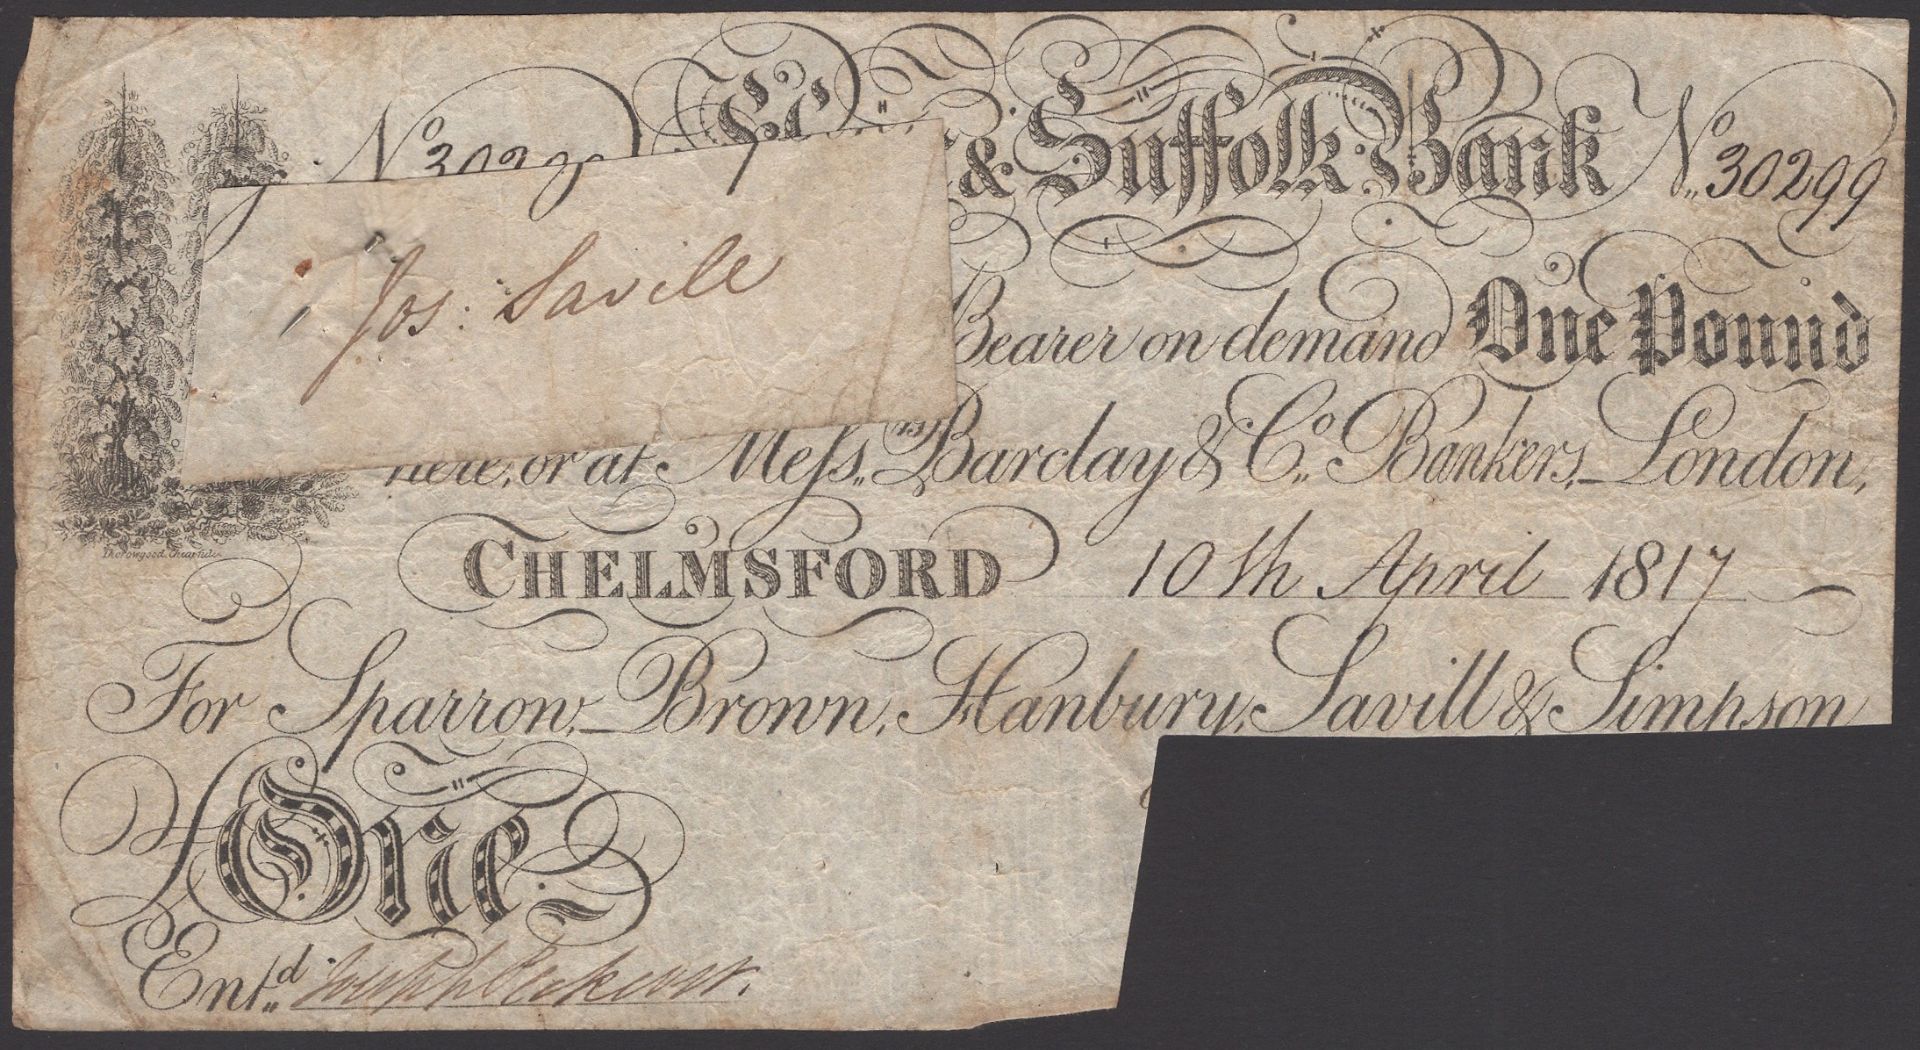 No. 30299 & Suffolk Bank No. 30299
Jos: Savill
Bearer on demand One Pound
here, or at Mess.rs Barclay & Co. Bankers, London,
CHELMSFORD 10th April 1817
For Sparrow, Brown, Hanbury, Savill & Simpson
£One
Ent.d Joseph